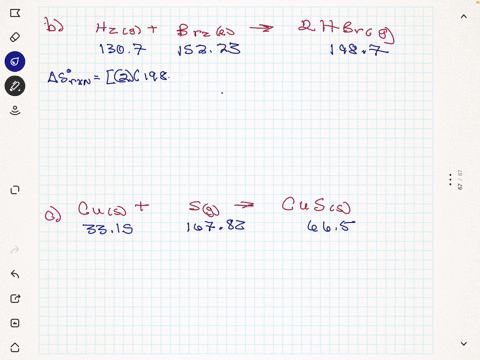 b) H2(g) + Br2(l) → 2HBr(g)
130.7 152.23 198.7
ΔS°rxn = [(2)(198.
a) Cu(s) + S(g) → CuS(s)
33.15 167.83 66.5
67 / 67